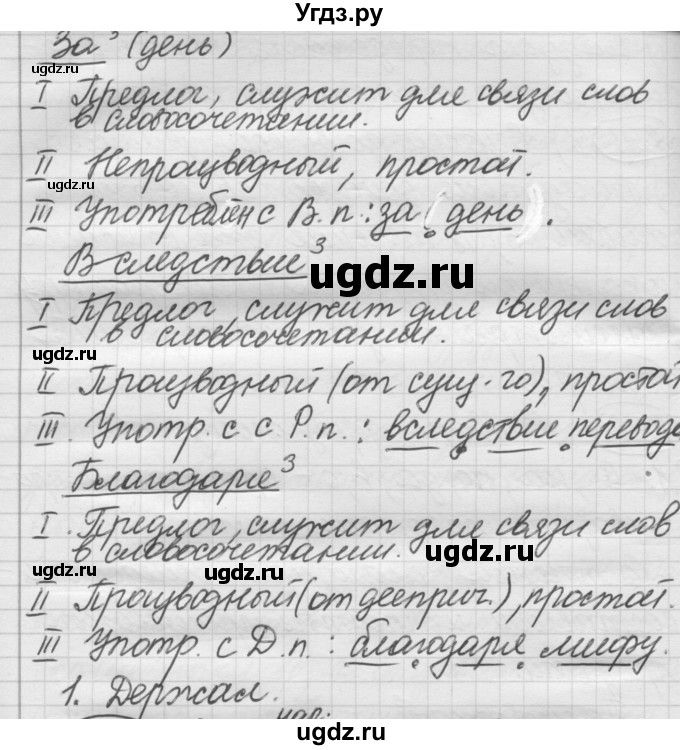 Угдз.ру
За³ (день)
ugdz.ru
I Предлог, служит для связи слов
в словосочетании.
II Непроизводный, простой.
ugdz.ru
III Употреблён с В.п.: за (день).
Вследствие³
ugdz.ru
I Предлог, служит для связи слов
в словосочетании.
ugdz.ru
II Производный (от сущ-го), простой
III. Употр. с с Р.п.: вследствие перевода
ugdz.ru
Благодаря³
I. Предлог, служит для связи слов
в словосочетании.
ugdz.ru
ugdz.ru
ugdz.ru
II Производный (от дееприч.), простой.
III Употр. с Д.п.: благодаря мифу.
ugdz.ru
ugdz.ru
1. Держал.